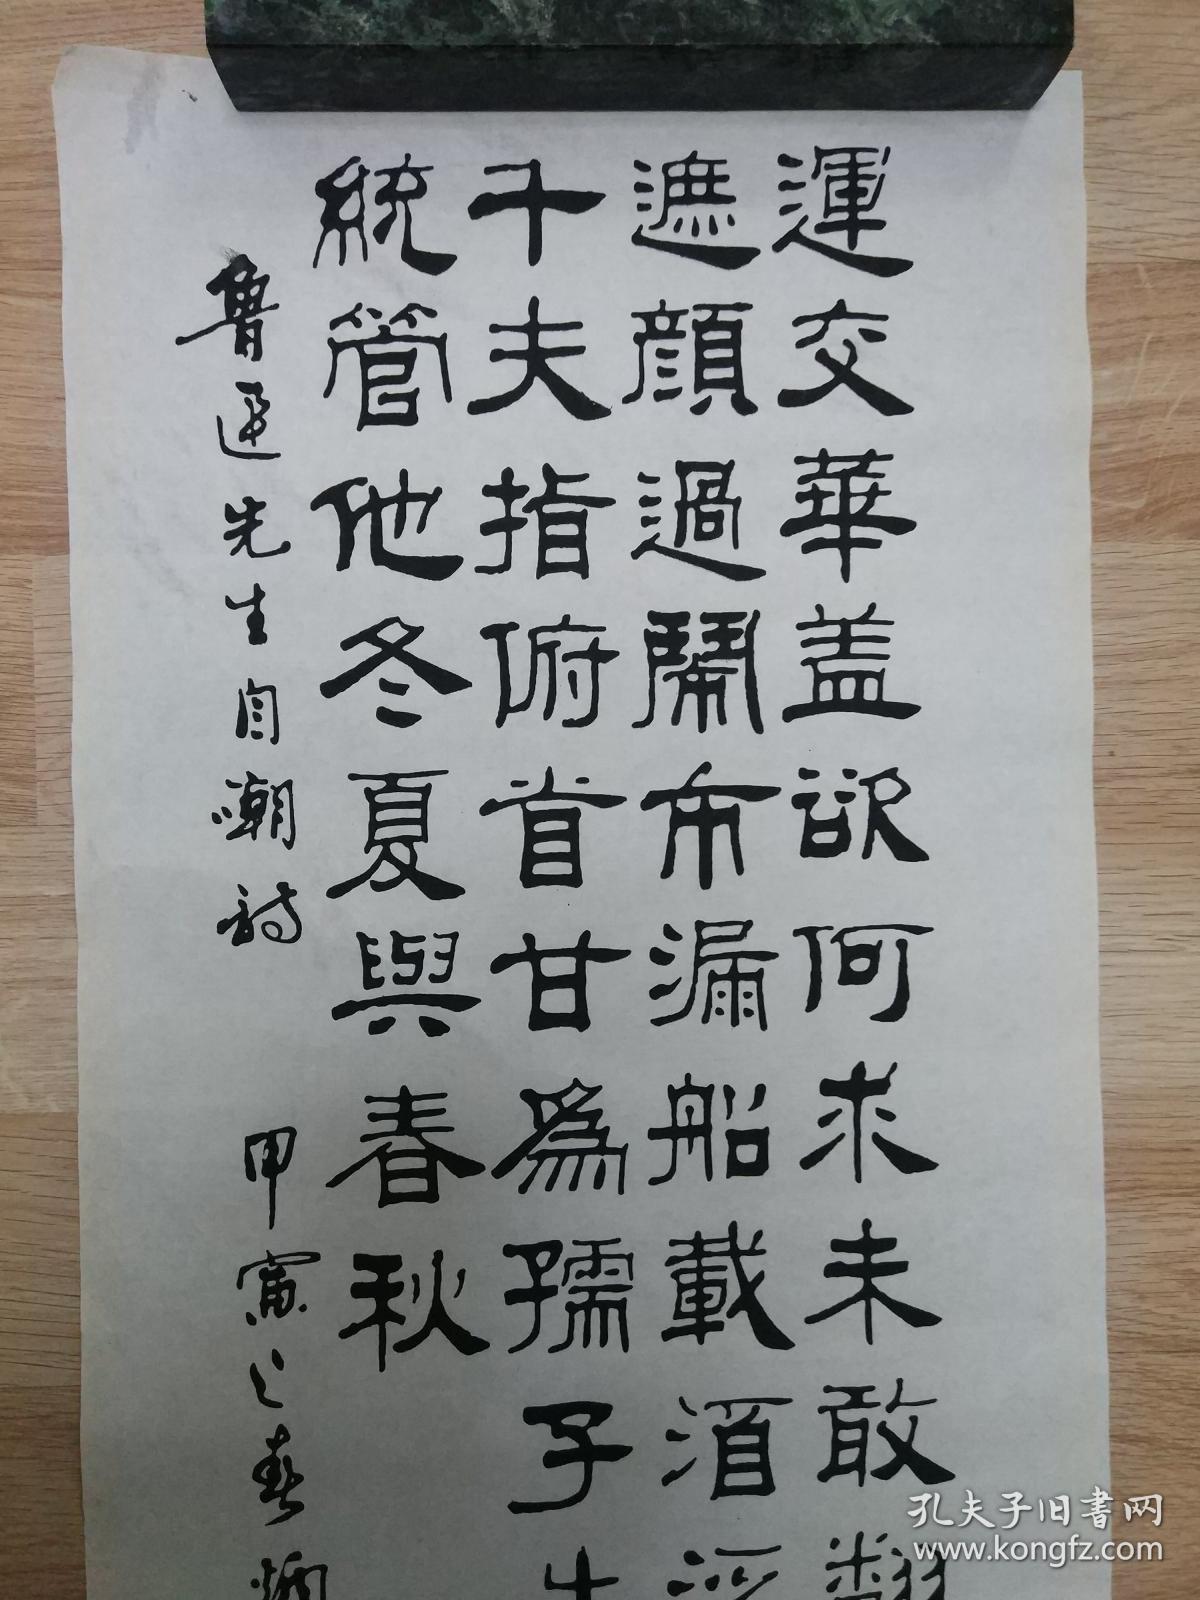 運交華盖欲何求未敢翻
遮顔過鬧市漏船載酒
千夫指俯首甘爲孺子牛
統管他冬夏與春秋
魯迅先生自嘲詩 甲寅之春炳
孔夫子旧书网
www.kongfz.com